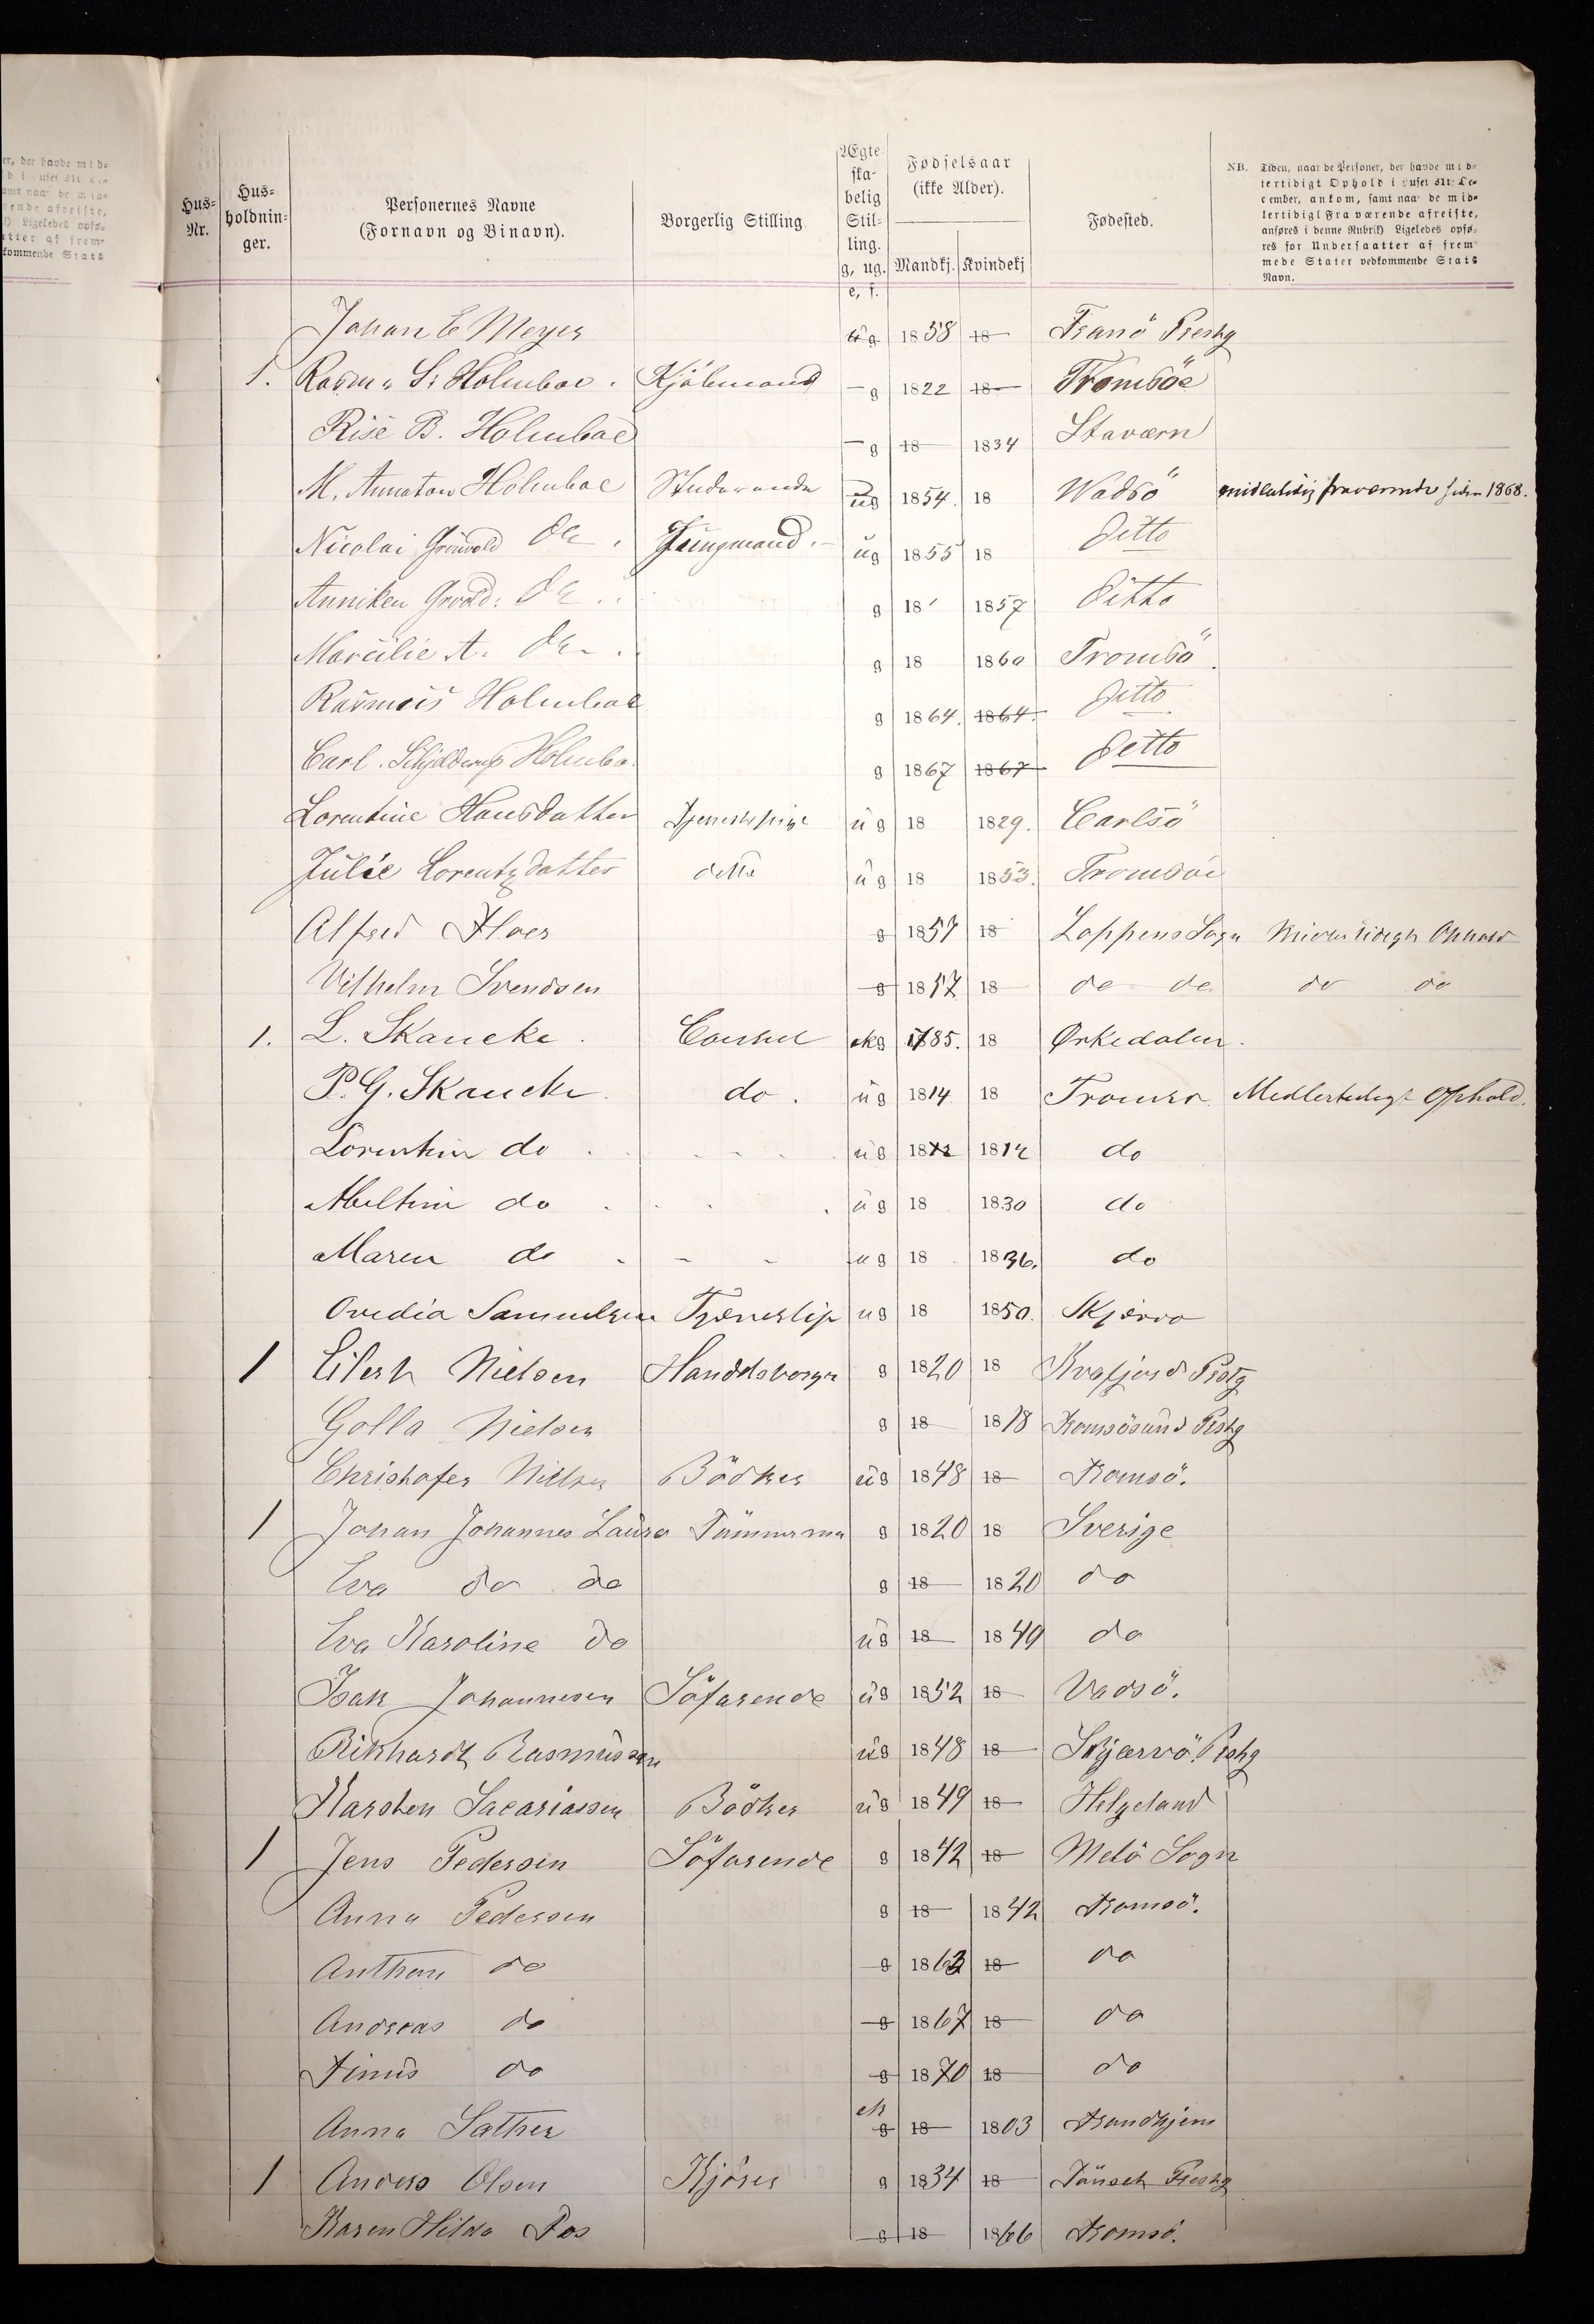 Hus-Nr. Hus-holdnin-ger. Personernes Navne (Fornavn og Binavn). Borgerlig Stilling. Ægte-ska-belig Stil-ling. g, ug. e, f. Fødselsaar (ikke Alder). Mandkj. Kvindekj Fødested. NB. Tiden, naar de Personer, der havde mid-
lertidigt Ophold i Huset 31te De-
cember, ankom, samt naar de mid-
lertidigt Fraværende afreiste,
anføres i denne Rubrik) Ligeledes opfø-
res for Undersaatter af frem-
mede Stater vedkommende Stats
Navn.
Johan E Meyer ug 1858 18 Tranö Prestg
1. Rasm. S. Holmboe. Kjöbmand g 1822 18 Tromsöe
Rise B. Holmboe g 18 1834 Staværn
M. Annaton Holmboe Studerende ug 1854. 18 Wadsö midlertidig fraværende siden 1868.
Nicolai Grönvold do. Jungmand. ug 1855 18 Ditto
Anniken Grvold: do. g 18 1857 Ditto
Marcilie A. do. g 18 1860 Tromsö.
Rasmus Holmboe g 1864. 1864. Ditto
Carl. Schjelderup Holmbo. g 1867 1867 Ditto
Lorentine Hansdatter Tjenestepige ug 18 1829. Carlsö
Julie Lorentzdatter ditto ug 18 1853. Tromsöe
Alfred g 1857 18 Loppens Sogn Midlertidigt Ophold
Vilhelm Svendsen g 1857 18 do do do do
1. L. Skancke. Consul ekg 1785. 18 Ørkedalen.
P. G. Skancke. do. ug 1814 18 Tromsø. Medlertidigt Ophold.
Lorentine do. ug 1812 1812 do
Meltine do. ug 18 1830 do
Maren do ug 18 1836. do
Ovedia Samuelsen Tjenestep ug 18 1850. Skjervø
1 Eilert Nielsen Handelsborger g 1820 18 Kvafjord Prstg
Golla Nielsen g 18 1818 Tromsösund Prstg
Christofer Nielsen Bödker ug 1848 18 Tromsö.
1 Johan Johannes Laura Tömmerma g 1820 18 Sverige
Eva do do g 18 1820 do
Eva Karoline do ug 18 1849 do
Isak Johannesen Söfarende ug 1852 18 Vadsö.
Rikhardt Rasmussen ug 1848 18 Skjærvö Prstg
Karsten Sacariassen Bödker ug 1849 18 Helgeland
1 Jens Pedersen Söfarende g 1842 18 Melö Sogn
Anna Pedersen g 18 1842 Tromsö.
Anthon do g 1863 18 do
Andreas do g 1867 18 do
Tinus do g 1870 18 do
Anna Sather ek g 18 1803 Trondhjem
1 Anders Olsen Kjörer g 1834 18 Tönset Prestg
Karen Hilda g 18 1866 Tromsö.